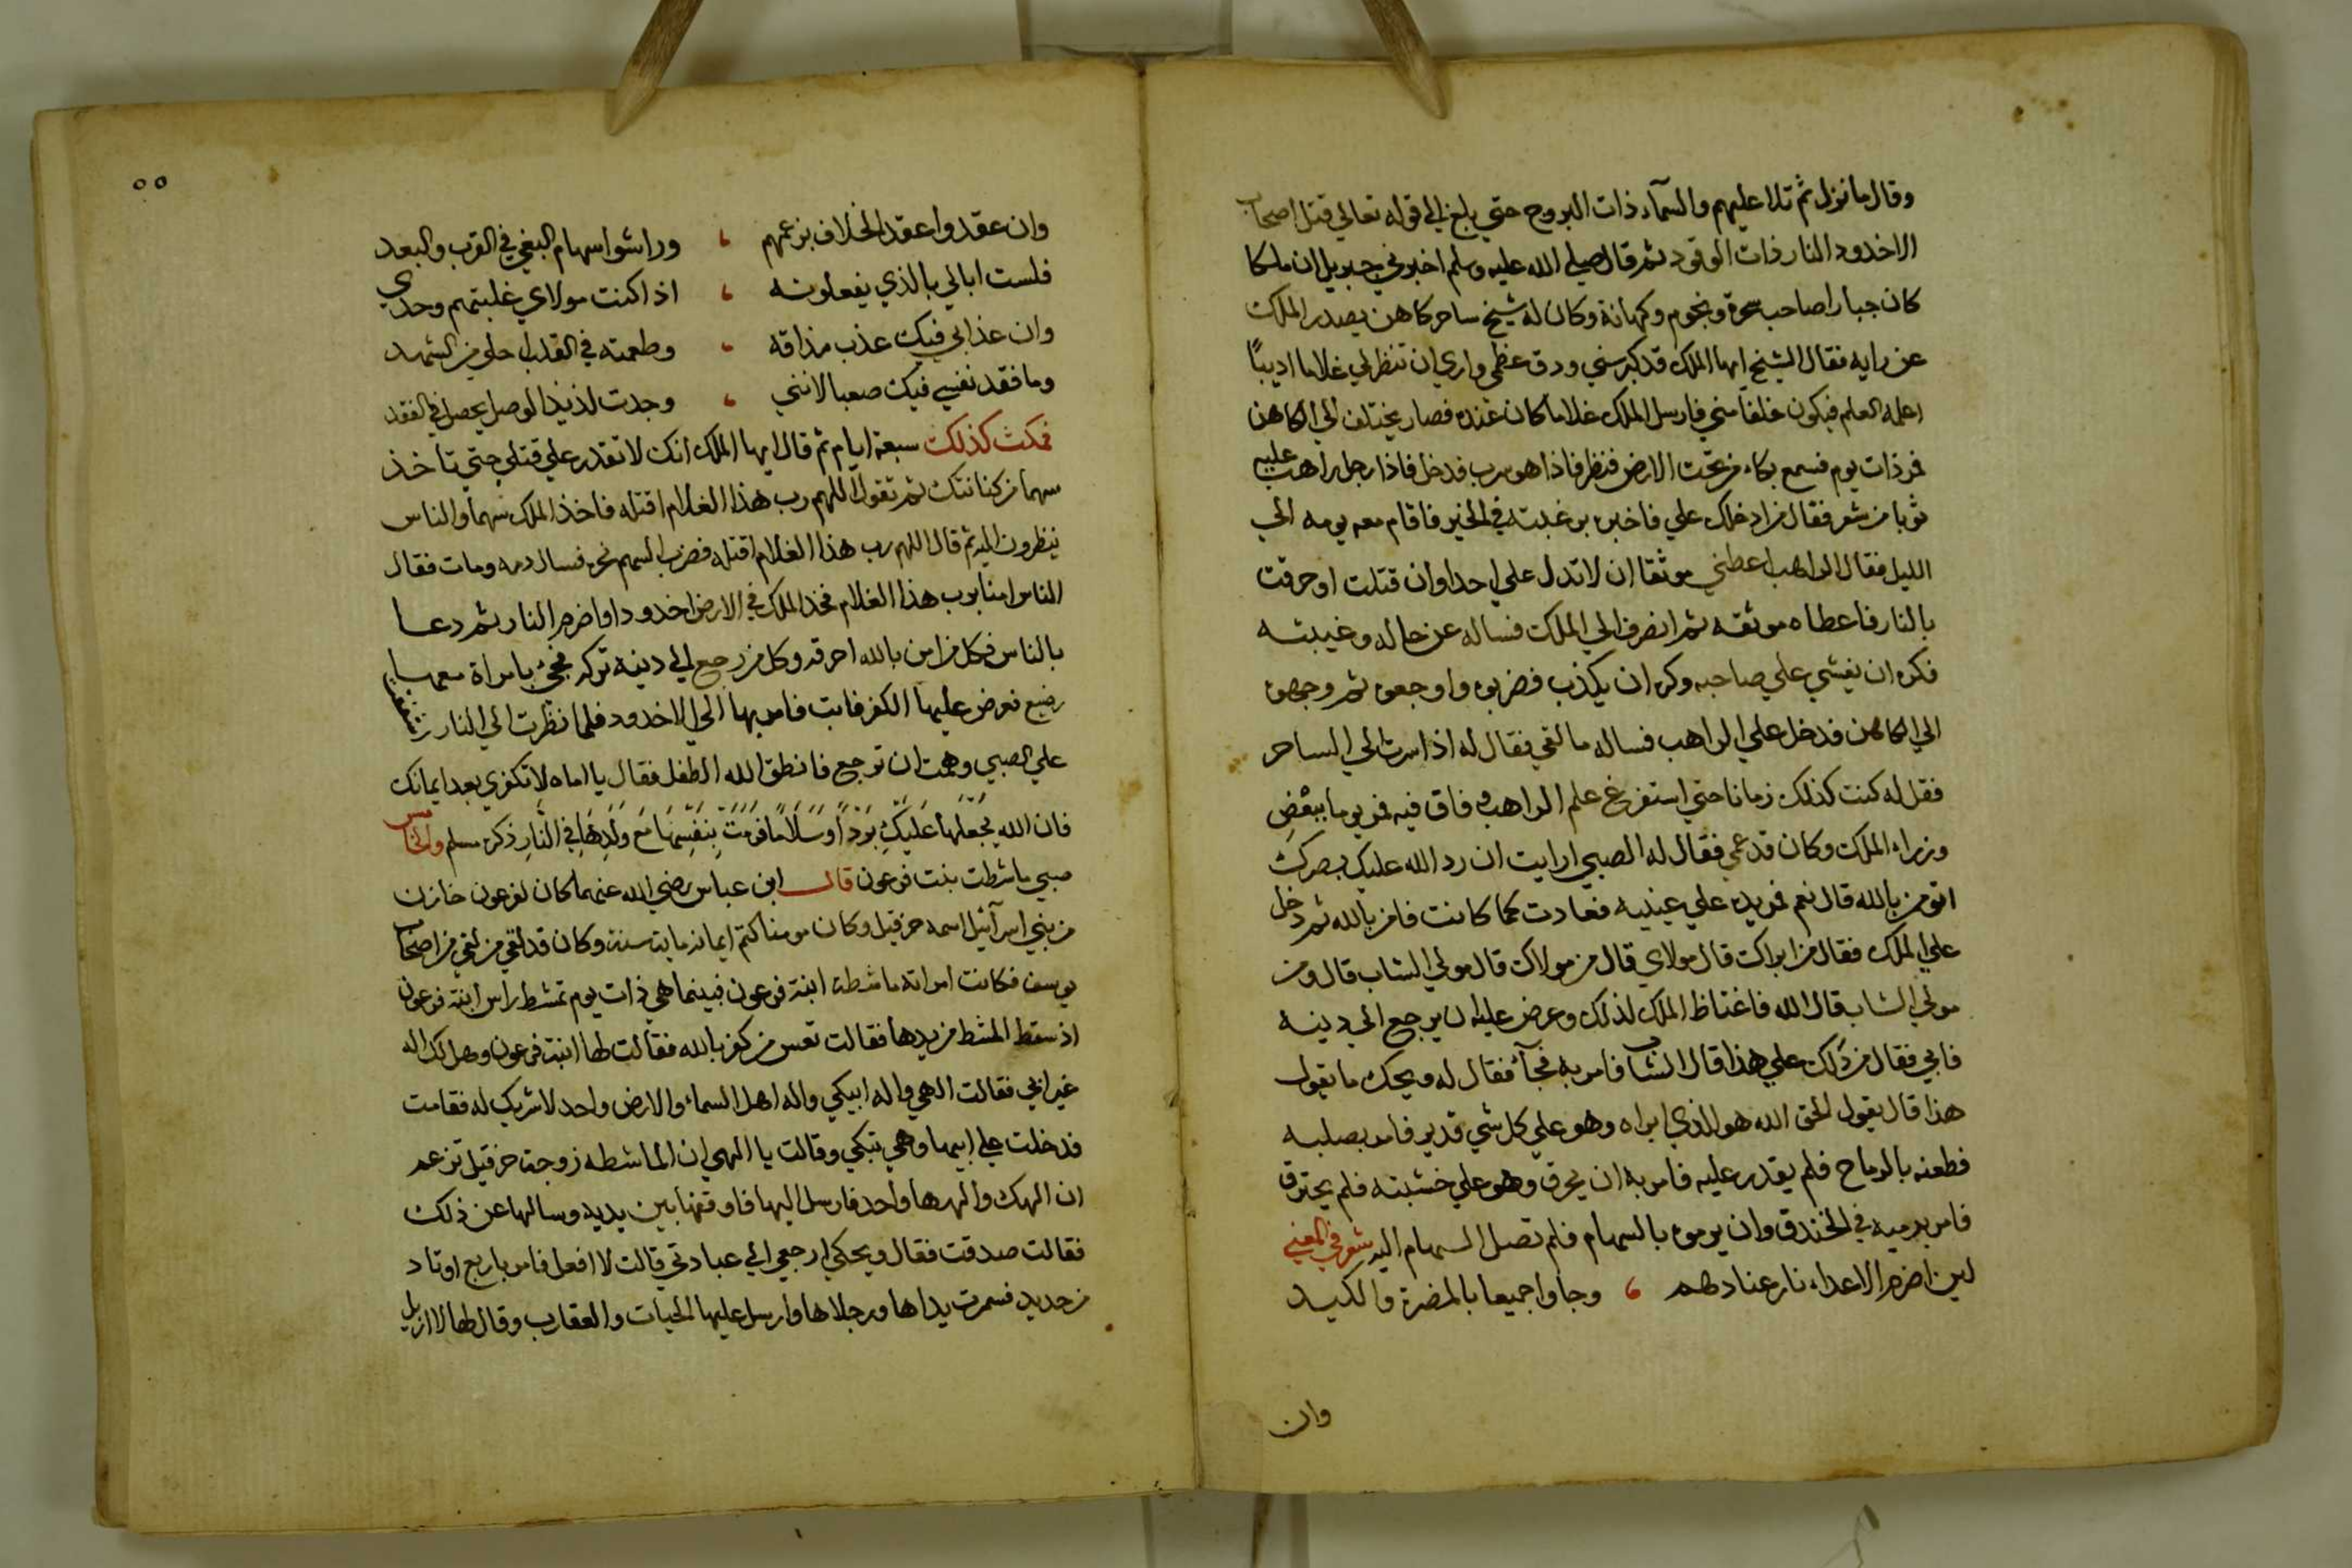 وقال ما نزل ثم تلا عليهم والسمآء ذات البروج حتي بلغ الي قوله تعالي قتل اصحاب
الاخدود النار ذات الوقود ثم قال صلي الله عليه وسلم اخبرني جبريل ان ملكا
كان جبارا صاحب سحرة ونجوم وكهانة وكان له شيخ ساحر كاهن يصدر الملك
عن رايه فقال الشيخ ايها الملك قد كبر سني ودق عظمي واري ان تنظر لي غلاما اديبًا
اعلمه العلم فيكون خلفا مني فارسل الملك غلاما كان عنده فصار يختلف الي الكاهن
فمر ذات يوم فسمع بكاء من تحت الارض فنظر فاذا هو سرب فدخل فاذا رجل راهب عليه
ثوبا من شعر فقال من ادخلك علي فاخبره برغبته في الخير فاقام معه يومه الي
الليل فقال الراهب اعطني موثقا ان لا تدل علي احدا وان قتلت او حرقت
بالنار فاعطاه موثقه ثم انصرف الي الملك فساله عن حاله وغيبته
فكره ان يفشي علي صاحبه وكره ان يكذب فضربوه واوجعوه ثم وجهوه
الي الكاهن فدخل علي الراهب فساله ما لقي فقال له اذا سرت الي الساحر
فقل له كنت كذلك زمانا حتي استفرغ علم الراهب وفاق فيه فمر يوما ببعض
وزراء الملك وكان قد عمي فقال له الصبي ارايت ان رد الله عليك بصرك
اتومن بالله قال نعم فمر يده علي عينيه فعادت كما كانت فامن بالله ثم دخل
علي الملك فقال من ابراك قال مولاي قال من مولاك قال مولي الشاب قال ومن
مولي الشاب قال الله فاغتاظ الملك لذلك وعرض عليه ان يرجع الي دينه
فابي فقال من دلك علي هذا قال الشاب فامر به فجآء فقال له ويحك ما يقول
هذا قال يقول الحق الله هو الذي ابراه وهو علي كل شي قدير فامر بصلبه
فطعنه بالرماح فلم يقدر عليه فامر به ان يحرق وهو علي خشبته فلم يحترق
فامر برميه في الخندق وان يرموه بالسهام فلم تصل السهام اليه شعر في المعني
لين اضرم الاعداء نار عنادهم ، وجاوا جميعا بالمضرة والكيد
وان
٥٥
وان عقدوا عقد الخلاف بزعمهم ، وراشوا سهام البغي في القرب والبعد
فلست ابالي بالذي يفعلونه ، اذا كنت مولاي غلبتهم وحدي
وان عذابي فيك عذب مذاقه ، وطعمته في القلب احلي من الشهد
وما فقد نفسي فيك صعبا لانني ، وجدت لذيذ الوصل يحصل في الفقد
فمكث كذلك سبعة ايام ثم قال ايها الملك انك لا تقدر علي قتلي حتي تاخذ
سهما من كنانتك ثم تقول اللهم رب هذا الغلام اقتله فاخذ الملك سهما والناس
ينظرون اليه ثم قال اللهم رب هذا الغلام اقتله فضرب السهم نحره فسال دمه ومات فقال
الناس امنا برب هذا الغلام فخد الملك في الارض اخدودا واضرم النار ثم دعا
بالناس فكل من امن بالله احرقه وكل من رجع الي دينه تركه فجئ بامراة معها
رضيع فعرض عليها الكفر فابت فامر بها الي الاخدود فلما نظرت الي النار
علي الصبي وهمت ان ترجع فانطق الله الطفل فقال يا اماه لا تكفري بعد ايمانك
فان الله يَجْعَلها عَلَيكِ بَرْدًا وسَلَامًا فرَمَتْ بِنَفْسِهَا مَع وَلَدِهَا في النَّارِ ذكره مسلم والخامس
صبي ماشطت بنت فرعون قال ابن عباس رضي الله عنهما كان لفرعون خازن
من بني اسرآئيل اسمه حزقيل وكان مومنا كتم ايمانه ماية سنة وكان قد لقي من لقي من اصحاب
يوسف فكانت امراته ماشطة ابنة فرعون فبينما هي ذات يوم تمشط راس ابنة فرعون
اذ سقط المشط من يدها فقالت تعس من كفر بالله فقالت لها ابنة فرعون وهل لك اله
غير ابي فقالت الهي واله ابيكي واله اهل السماء والارض واحد لا شريك له فقامت
فدخلت علي ابيها وهي تبكي وقالت يا الهي ان الماشطه زوجة حزقيل تزعم
ان الهك والهها واحد فارسل اليها فاوقفها بين يديه وسالها عن ذلك
فقالت صدقت فقال ويحكي ارجعي الي عبادتي قالت لا افعل فامر باربع اوتاد
من حديد فسمرت يداها ورجلاها وارسل عليها الحيات والعقارب وقال لها لا ازيل